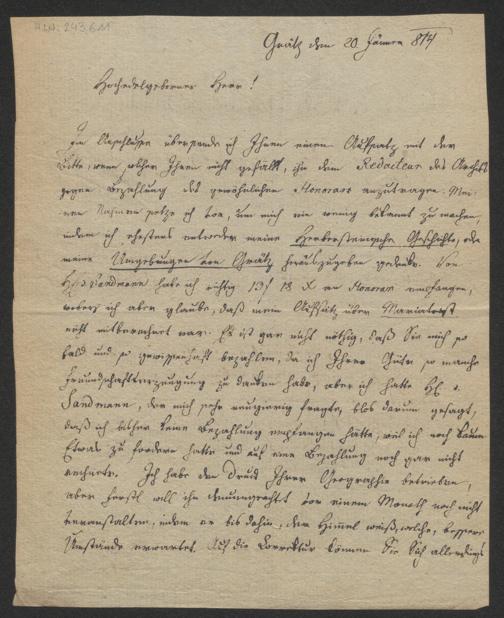 H.I.N. 243.611
Grätz den 20. Jänner 814
Hochedelgeborner Herr!
Im Anschluße übersende ich Ihnen einen Aufsatz mit der
Bitte, wenn solcher Ihnen nicht gefällt, ihn dem Redacteur des Archivs
gegen Bezahlung des gewöhnlichen Honorars anzutragen. Mei-
nen Nahmen setze ich vor, um mich ein wenig bekannt zu machen,
indem ich ehestens entweder meine Herbersteinische Geschichte, oder
meine Umgebungen von Grätz herauszugeben gedenke. Von
H. v. Sandmann habe ich richtig 13 f 18 x an Honorar empfangen,
wobey ich aber glaube, daß mein Aufsatz über
nicht mitberechnet war. Es ist gar nicht nöthig, daß Sie mich so
bald und so gewissenhaft bezahlen, da ich Ihrer Güte so manche
Freundschaftsbezeugung zu danken habe, aber ich hatte H. v.
Sandmann, der mich sehr neugierig fragte, blos darum gesagt,
daß ich bisher keine Bezahlung empfangen hätte, weil ich noch kaum
Etwas zu fordern hatte und auf eine Bezahlung noch gar nicht
rechnete. Ich habe den Druck Ihrer Geographie betrieben,
aber Ferstl will ihn demungeachtet vor einem Monath noch nicht
veranstalten, indem er bis dahin, der Himmel weiß, welche, bessere
Umstände erwartet. Auf die Correktur können Sie Sich allerdings